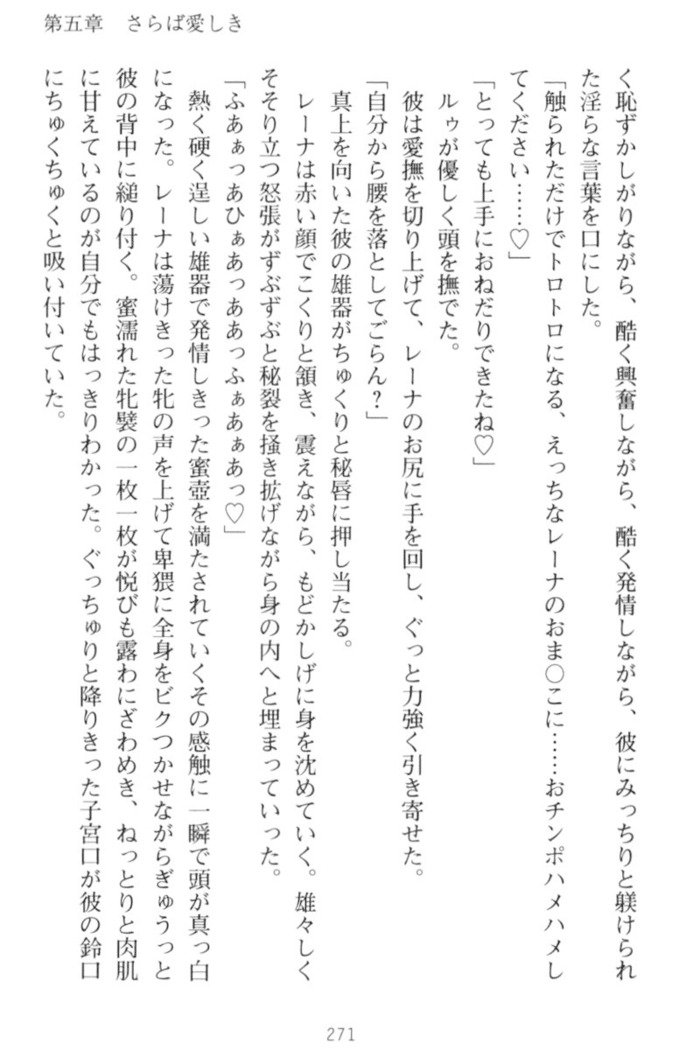 第五章　さらば愛しき
く恥ずかしがりながら、酷く興奮しながら、酷く発情しながら、彼にみっちりと躾けられ
た淫らな言葉を口にした。
「触られただけでトロトロになる、えっちなレーナのおま〇こに……おチンポハメハメし
てください……♡」
「とっても上手におねだりできたね♡」
ルゥが優しく頭を撫でた。
彼は愛撫を切り上げて、レーナのお尻に手を回し、ぐっと力強く引き寄せた。
「自分から腰を落としてごらん？」
真上を向いた彼の雄器がちゅくりと秘唇に押し当たる。
レーナは赤い顔でこくりと頷き、震えながら、もどかしげに身を沈めていく。雄々しく
そそり立つ怒張がずぶずぶと秘裂を掻き拡げながら身の内へと埋まっていった。
「ふあぁっあひぁあっああっふぁあぁあっ♡」
熱く硬く逞しい雄器で発情しきった蜜壺を満たされていくその感触に一瞬で頭が真っ白
になった。レーナは蕩けきった牝の声を上げて卑猥に全身をビクつかせながらぎゅうっと
彼の背中に縋り付く。蜜濡れた牝襞の一枚一枚が悦びも露わにざわめき、ねっとりと肉肌
に甘えているのが自分でもはっきりわかった。ぐっちゅりと降りきった子宮口が彼の鈴口
にちゅくちゅくと吸い付いていた。
271